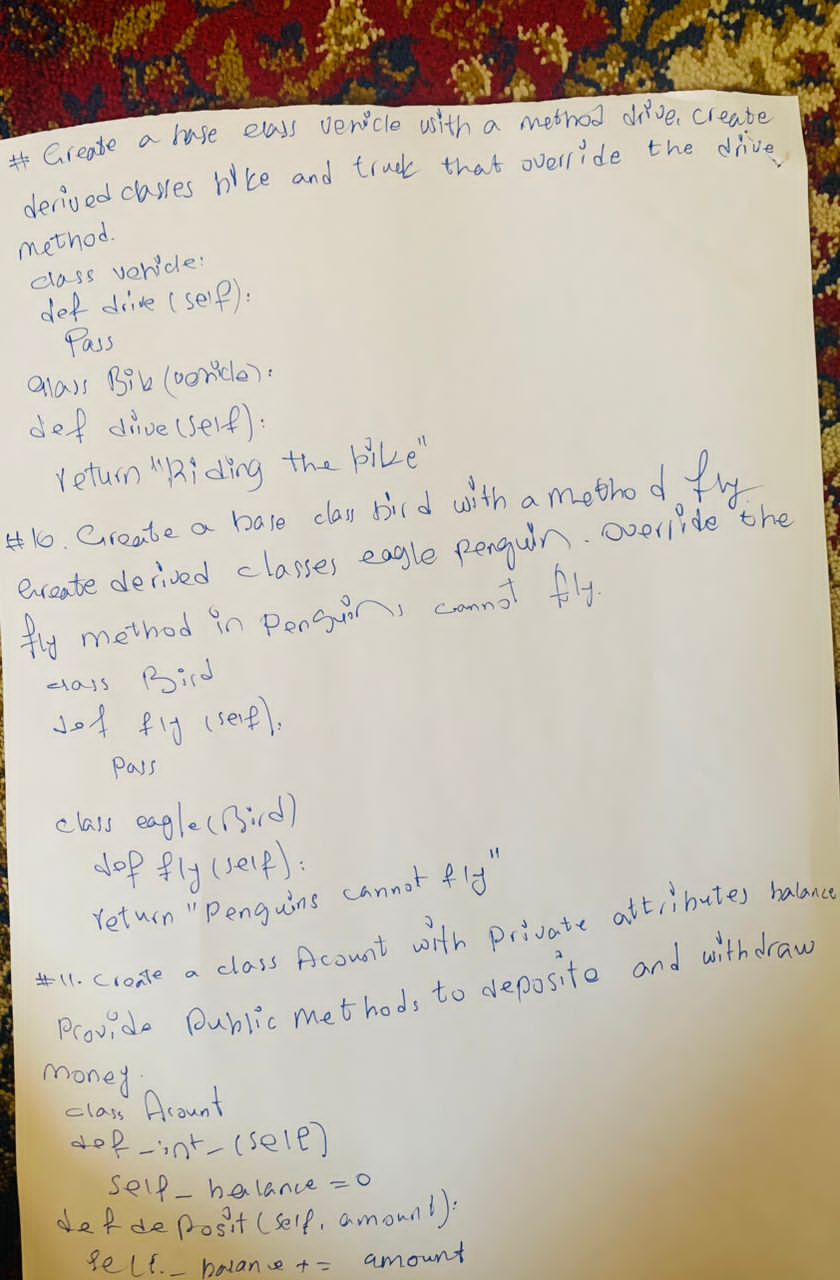 # Create a base class vehicle with a method drive. Create
derived classes bike and truck that override the drive
method.
class vehicle:
def drive (self):
Pass
class Bik (vehicle):
def drive (self):
return "Riding the bike"
#10. Create a base class bird with a method fly
create derived classes eagle penguin. override the
fly method in Penguins cannot fly.
class Bird
def fly (self),
Pass
class eagle (Bird)
def fly (self):
return "Penguins cannot fly"
#11. Create a class Acount with Private attributes balance
Provide Public methods to deposite and withdraw
money.
class Acount
def _int_ (self)
self_ balance = 0
def deposit (self, amount):
self._ balance += amount